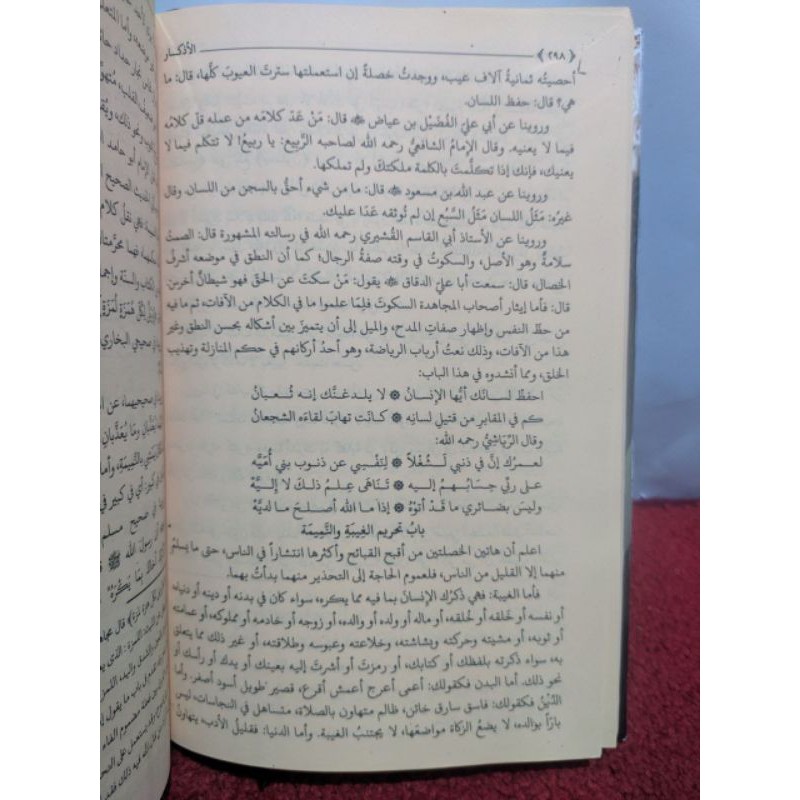 ﴿٢٩٨﴾ الأذكـار
أحصيتُه ثمانيةُ آلاف عيب، ووجدتُ خصلةً إن استعملتها سترتَ العيوبَ كلَّها، قال: ما
هي؟ قال: حفظ اللسان.
وروينا عن أبي عليّ الفُضَيْل بن عياض ﷺ قال: مَنْ عَدّ كلامَه من عمله قلَّ كلامُه
فيما لا يعنيه. وقال الإمامُ الشافعيُّ رحمه الله لصاحبه الرَّبِيع: يا ربيعُ! لا تتكلم فيما لا
يعنيك، فإنك إذا تكلَّمتَ بالكلمة ملكتكَ ولم تملكها.
وروينا عن عبد الله بن مسعود قال: ما من شيءٍ أحقُّ بالسجن من اللسان. وقال
غيرُه: مَثَلُ اللسان مَثَلُ السَّبُع إن لم تُوثقه عَدَا عليك.
وروينا عن الأستاذ أبي القاسم القُشيري رحمه الله في رسالته المشهورة قال: الصمتُ
سلامةٌ وهو الأصل، والسكوتُ في وقته صفةُ الرجال؛ كما أن النطق في موضعه أشرفُ
الخصال، قال: سمعت أبا عليّ الدقاق يقول: مَنْ سكتَ عن الحقّ فهو شيطانٌ أخرس.
قال: فأما إيثار أصحاب المجاهدة السكوتَ فلِمَا علموا ما في الكلام من الآفات، ثم ما فيه
من حظّ النفس وإظهار صفاتِ المدح، والميل إلى أن يتميزَ بين أشكاله بحسن النطق وغير
هذا من الآفات، وذلك نعتُ أرباب الرياضة، وهو أحدُ أركانهم في حكم المنازلة وتهذيب
الخلق، ومما أنشدوه في هذا الباب:
احفظْ لسانَك أيُّها الإنسانُ لا يلدغنَّك إنه ثُعبانُ
كم في المقابرِ من قتيلِ لسانِه كانت تهابُ لقاءَه الشجعانُ
وقال الرِّياشيُّ رحمه الله:
لعمرُك إنَّ في ذنبي لَشُغْلاً لِنفْسِي عن ذنوب بني أُمَيَّه
على ربّي حسابُهم إليه تَنَاهَى عِلمُ ذلك لا إليَّهْ
وليسَ بضائري ما قَدْ أتوْهُ إذا ما الله أصلحَ ما لديَّهْ
بابُ تحريم الغِيبَةِ والنَّمِيمَة
اعلم أن هاتين الخصلتين من أقبح القبائح وأكثرها انتشاراً في الناس، حتى ما يسلمُ
منهما إلا القليل من الناس، فلعموم الحاجة إلى التحذير منهما بدأتُ بهما.
فأما الغيبة: فهي ذكرُك الإنسانَ بما فيه مما يكره، سواء كان في بدنه أو دينه أو دنياه،
أو نفسه أو خَلقه أو خُلقه، أو ماله أو ولده أو والده، أو زوجه أو خادمه أو مملوكه، أو عمامته
أو ثوبه، أو مشيته وحركته وبشاشته، وخلاعته وعبوسه وطلاقته، أو غير ذلك مما يتعلق
به، سواء ذكرته بلفظك أو كتابك، أو رمزتَ أو أشرتَ إليه بعينك أو يدك أو رأسك أو
نحو ذلك. أما البدن فكقولك: أعمى أعرج أعمش أقرع، قصير طويل أسود أصفر. وأما
الدِّيْنُ فكقولك: فاسق سارق خائن، ظالم متهاون بالصلاة، متساهل في النجاسات، ليس
بارّاً بوالده، لا يضعُ الزكاة مواضعَها، لا يجتنبُ الغيبة. وأما الدنيا: فقليلُ الأدب، يتهاونُ